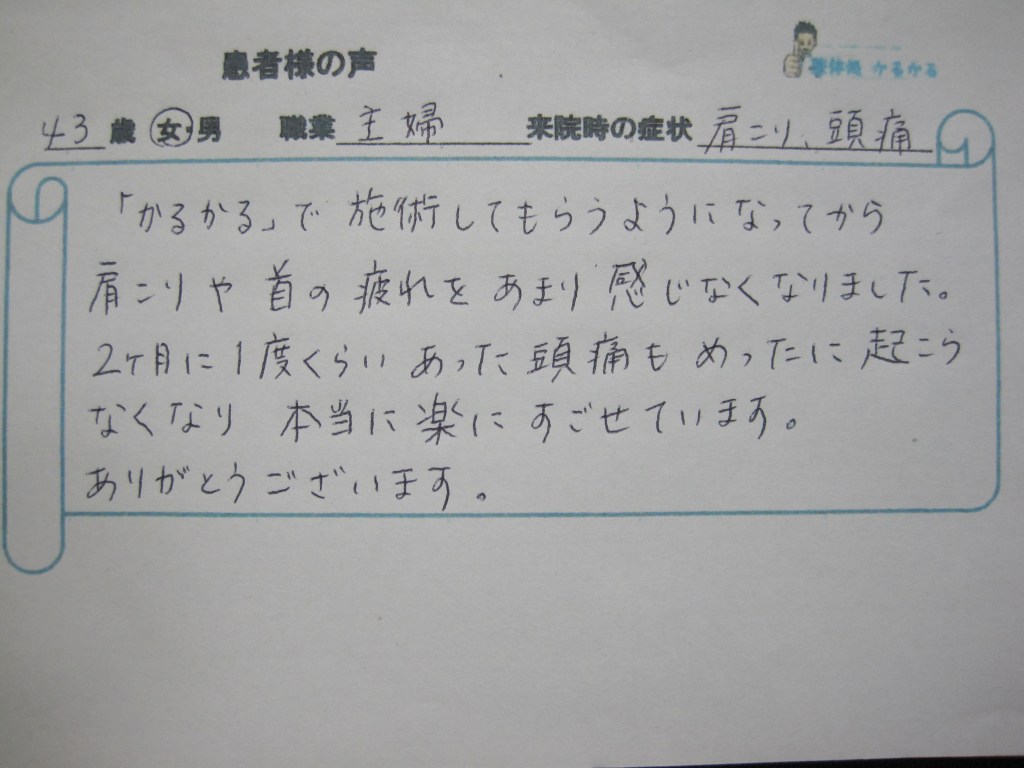 患者様の声
整体処 かるかる
43歳 女・男 職業 主婦 来院時の症状 肩こり、頭痛
「かるかる」で 施術してもらうようになってから
肩こりや 首の 疲れを あまり 感じなくなりました。
2ヶ月に1度くらい あった 頭痛も めったに 起こら
なくなり 本当に楽に すごせています。
ありがとうございます。